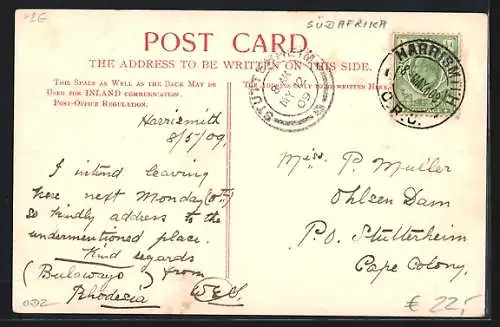 1G
SÜDAFRIKA
POST CARD.
THE ADDRESS TO BE WRITTEN ON THIS SIDE.
THIS SPACE AS WELL AS THE BACK MAY BE
USED FOR INLAND COMMUNICATION.
POST-OFFICE REGULATION.
THE ADDRESS ONLY TO BE WRITTEN HERE.
STUTTERHEIM
AM
MY 12
09
HARRISMITH
O.R.C.
Harrismith
8/5/09.
I intend leaving
here next Monday
so kindly address to the
undermentioned place.
Kind regards
(Bulawayo) from
Rhodesia
Miss P. Muller
Ohlsen Dam
P.O. Stutterheim
Cape Colony.
€ 22,-